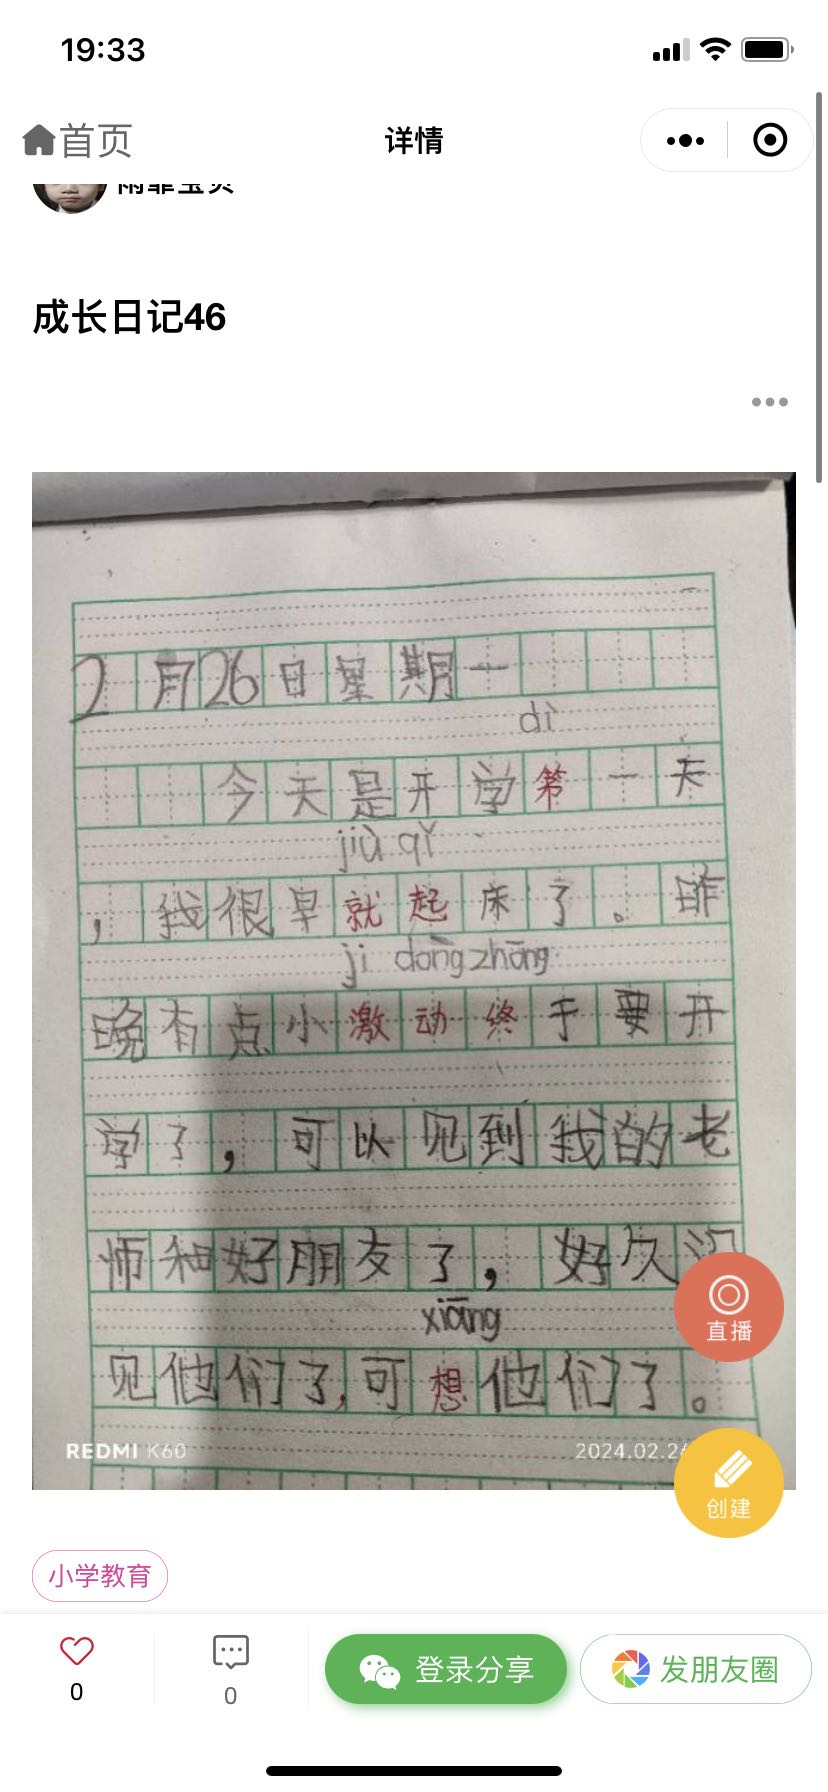 19:33
首页
详情
雨霏宝贝
成长日记46
2月26日星期一
dì
今天是开学第一天
jiù qǐ
，我很早就起床了。昨
jī dòng zhōng
晚有点小激动终于要开
学了，可以见到我的老
师和好朋友了，好久没
xiāng
见他们了，可想他们了。
REDMI K60
2024.02.26
直播
创建
小学教育
0
0
登录分享
发朋友圈